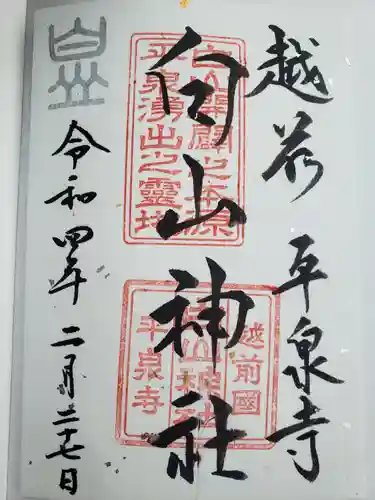 越前 平泉寺
白山神社
令和四年 二月二十七日
白山開闢之本源
平泉湧出之靈地
越前國
白山神社
平泉寺